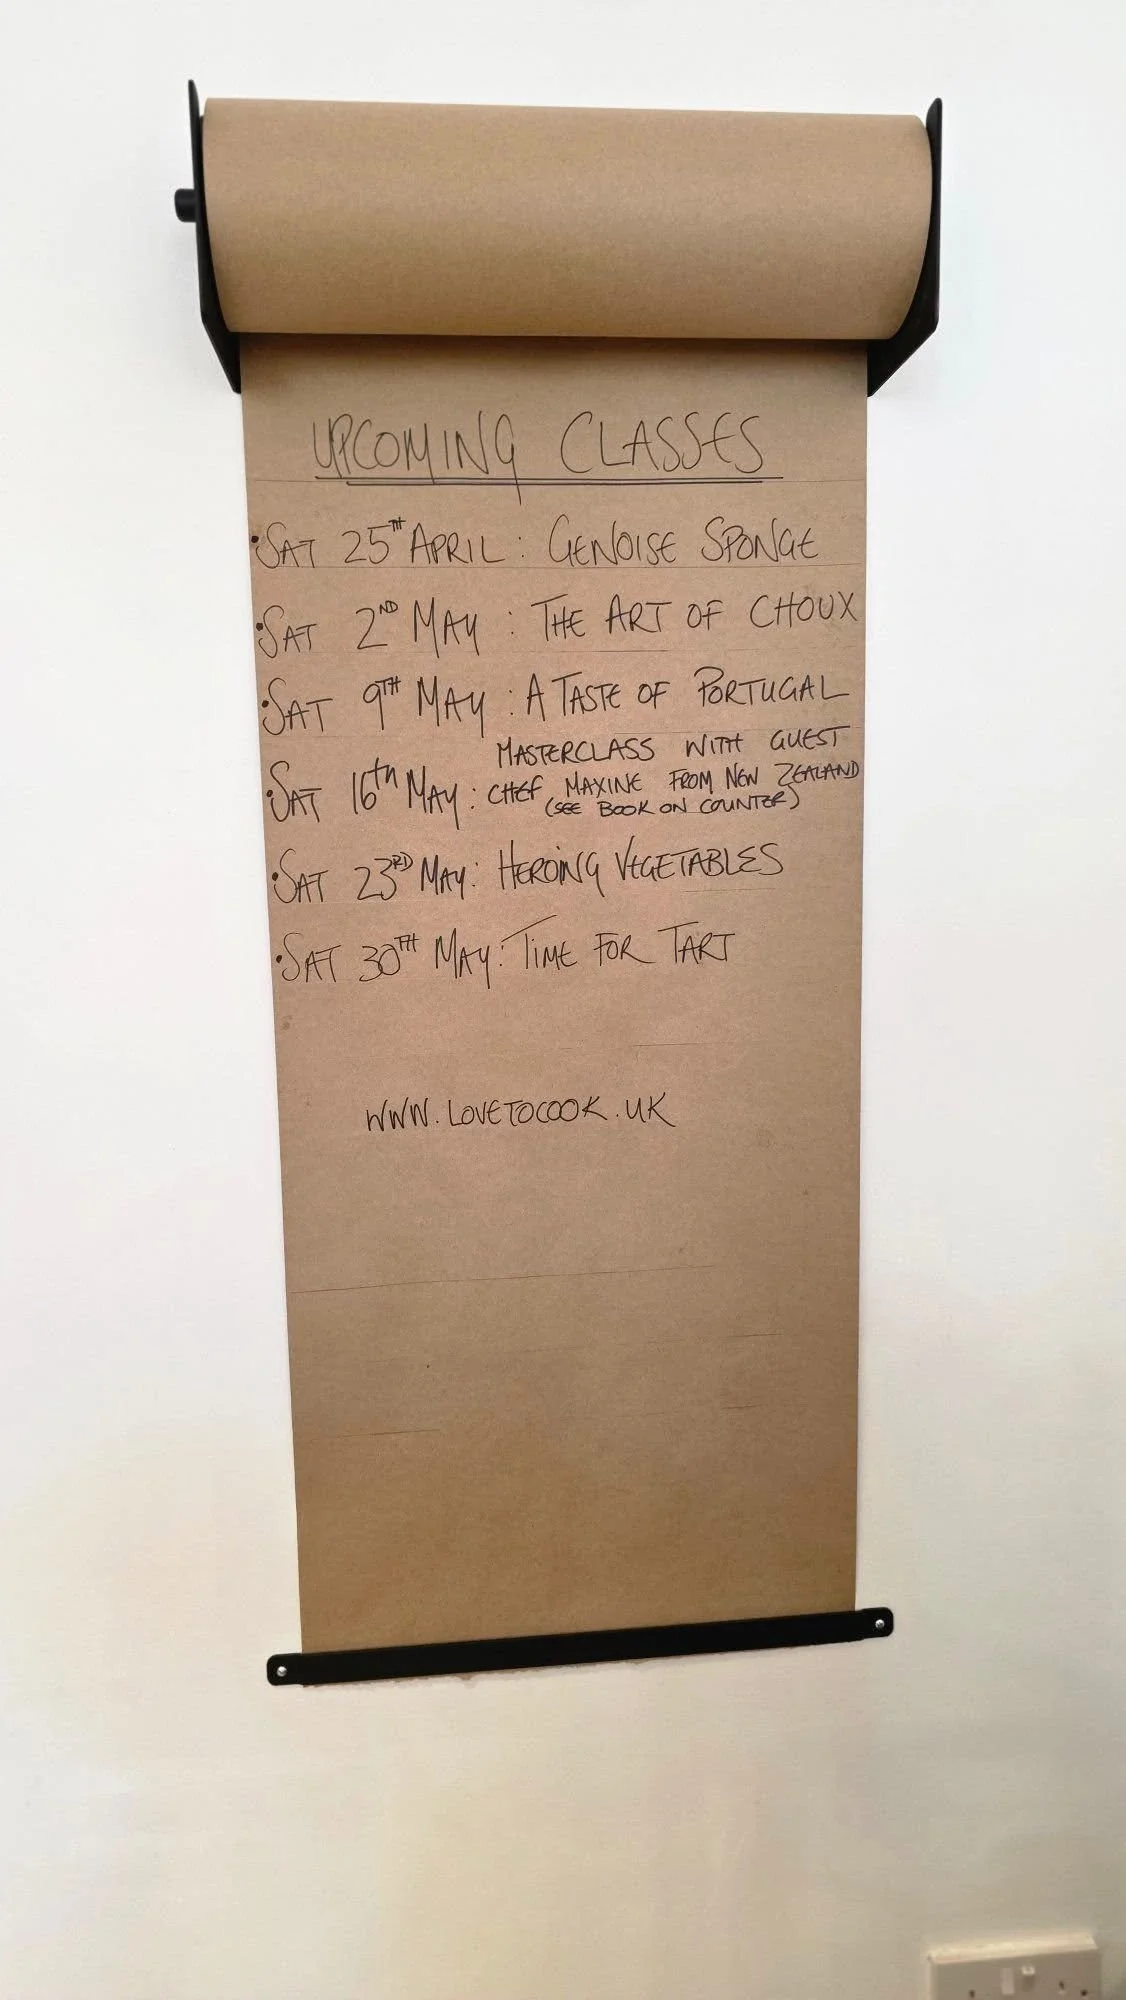 UPCOMING CLASSES
• SAT 25TH APRIL : GENOISE SPONGE
• SAT 2ND MAY : THE ART OF CHOUX
• SAT 9TH MAY : A TASTE OF PORTUGAL
MASTERCLASS WITH GUEST
• SAT 16th MAY : CHEF MAXINE FROM NEW ZEALAND
(SEE BOOK ON COUNTER)
• SAT 23RD MAY : HEROING VEGETABLES
• SAT 30TH MAY : TIME FOR TART
WWW.LOVETOCOOK.UK